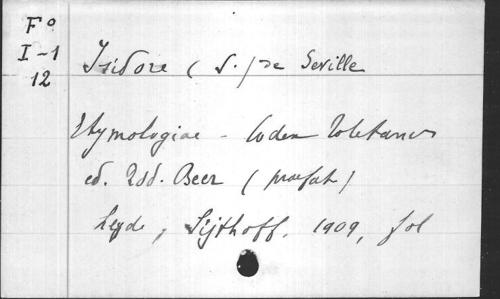 Fº
I-1
12
Isidore (S.) de Seville
Etymologiae - Codex Toletanus
ed. Rod. Beer (praefat)
Leyde, Sijthoff. 1909, fol